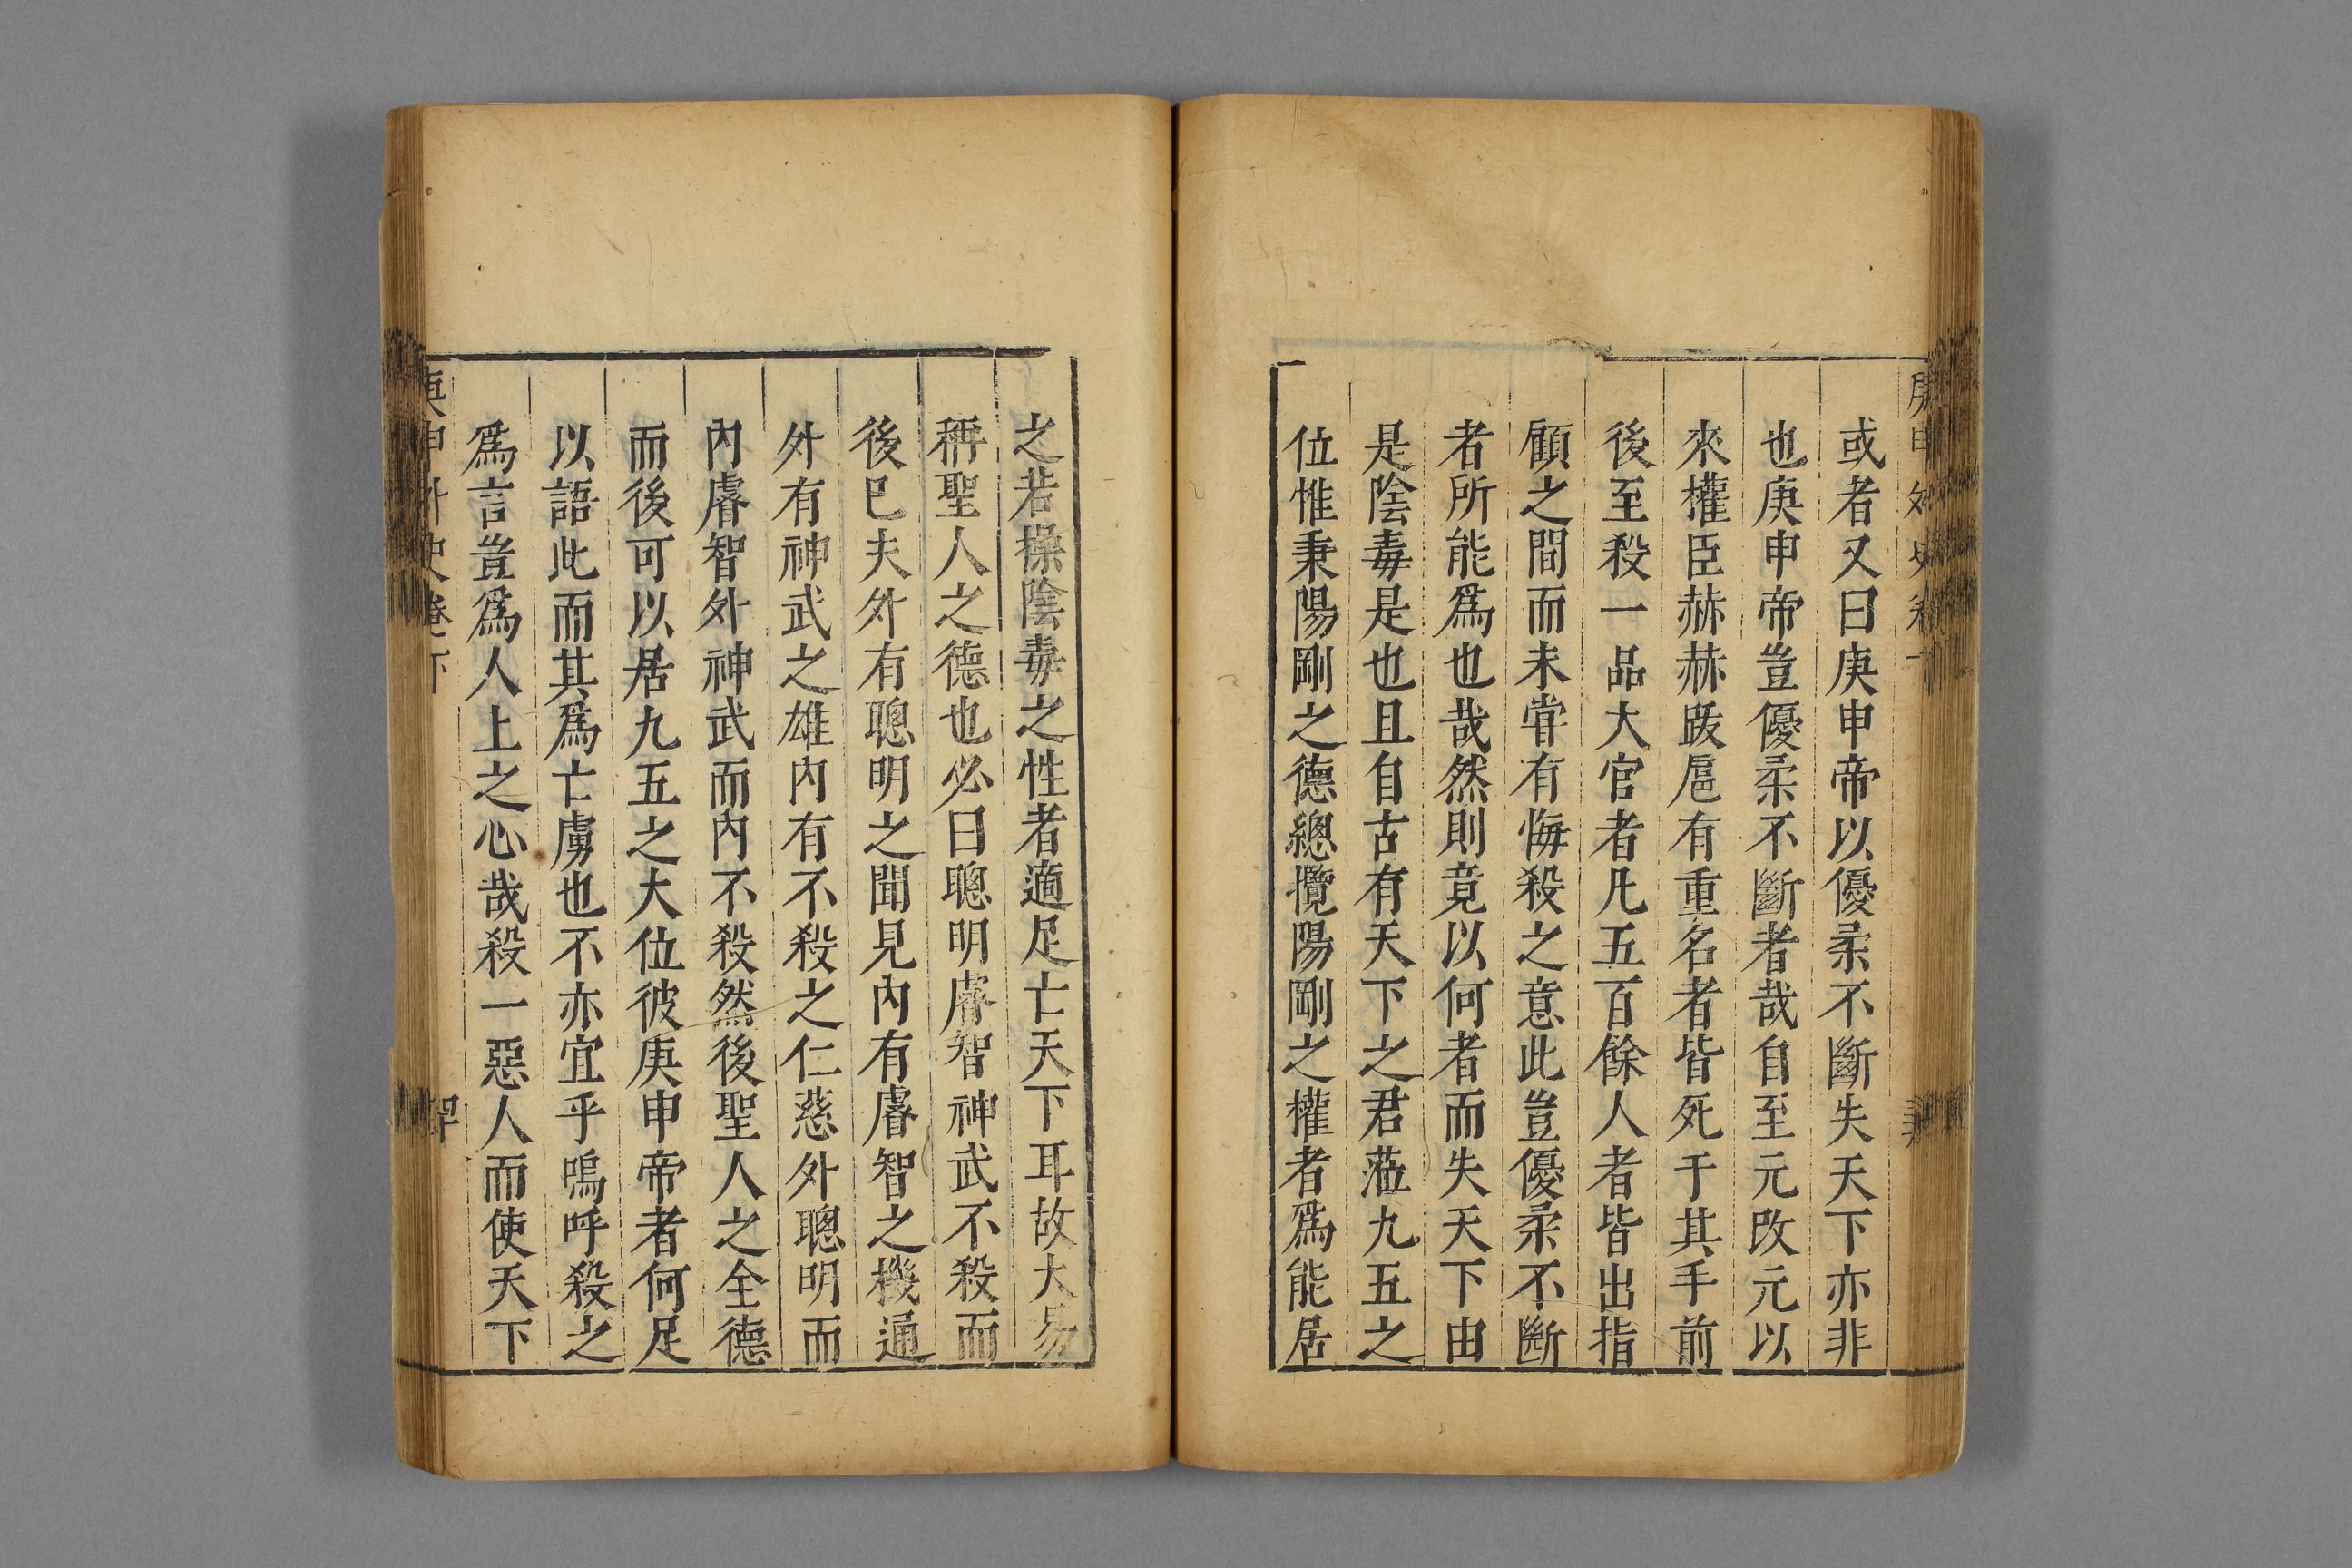 或者又曰庚申帝以優柔不斷失天下亦非
也庚申帝豈優柔不斷者哉自至元改元以
來權臣赫赫跋扈有重名者皆死于其手前
後至殺一品大官者凡五百餘人者皆出指
顧之間而未嘗有悔殺之意此豈優柔不斷
者所能爲也哉然則竟以何者而失天下由
是陰毒是也且自古有天下之君蒞九五之
位惟秉陽剛之德總攬陽剛之權者爲能居
之若操陰毒之性者適足亡天下耳故大易
稱聖人之德也必曰聰明睿智神武不殺而
後已夫外有聰明之聞見內有睿智之機通
外有神武之雄內有不殺之仁慈外聰明而
內睿智外神武而內不殺然後聖人之全德
而後可以居九五之大位彼庚申帝者何足
以語此而其爲亡虜也不亦宜乎嗚呼殺之
爲言豈爲人上之心哉殺一惡人而使天下
庚申外史卷下